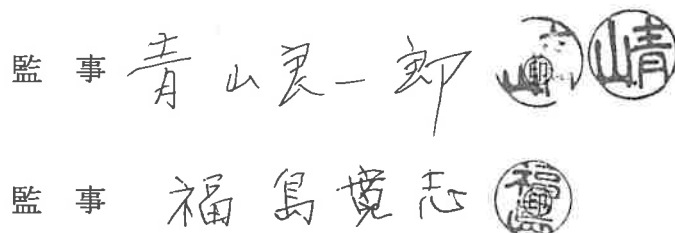 監 事 青山良一郎 印
監 事 福島寛志 印